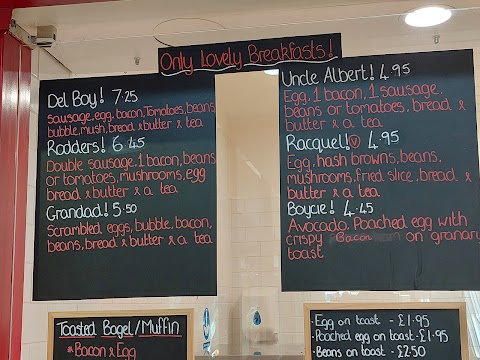 Only Lovely Breakfasts!
Del Boy! 7.25
Sausage, egg, bacon, Tomatoes, beans
bubble, mush, bread & butter & tea
Rodders! 6.45
Double sausage, 1 bacon, beans
or tomatoes, mushrooms, egg
bread & butter & a tea
Grandad! 5.50
Scrambled eggs, bubble, bacon,
beans, bread & butter & a tea
Uncle Albert! 4.95
Egg, 1 bacon, 1 sausage,
beans or tomatoes, bread &
butter & a tea
Racquel! V 4.95
Egg, hash browns, beans,
mushrooms, fried slice, bread &
butter & a tea
Boycie! 4.45
Avocado, Poached egg with
crispy Bacon on granary
toast
Toasted Bagel/Muffin
*Bacon & Egg
-Egg on toast - £1.95
-Poached egg on toast - £1.95
-Beans on toast - £2.50